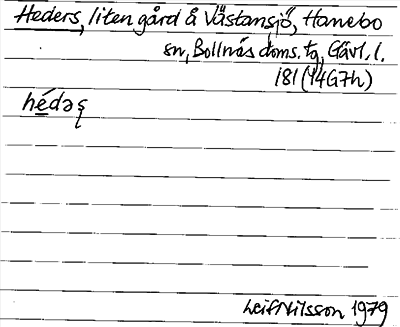 Heders, liten gård å Västansjö, Hanebo
sn, Bollnäs doms. tg, Gävl. l.
181 (14G7h)
hédəʂ
Leif Nilsson 1979